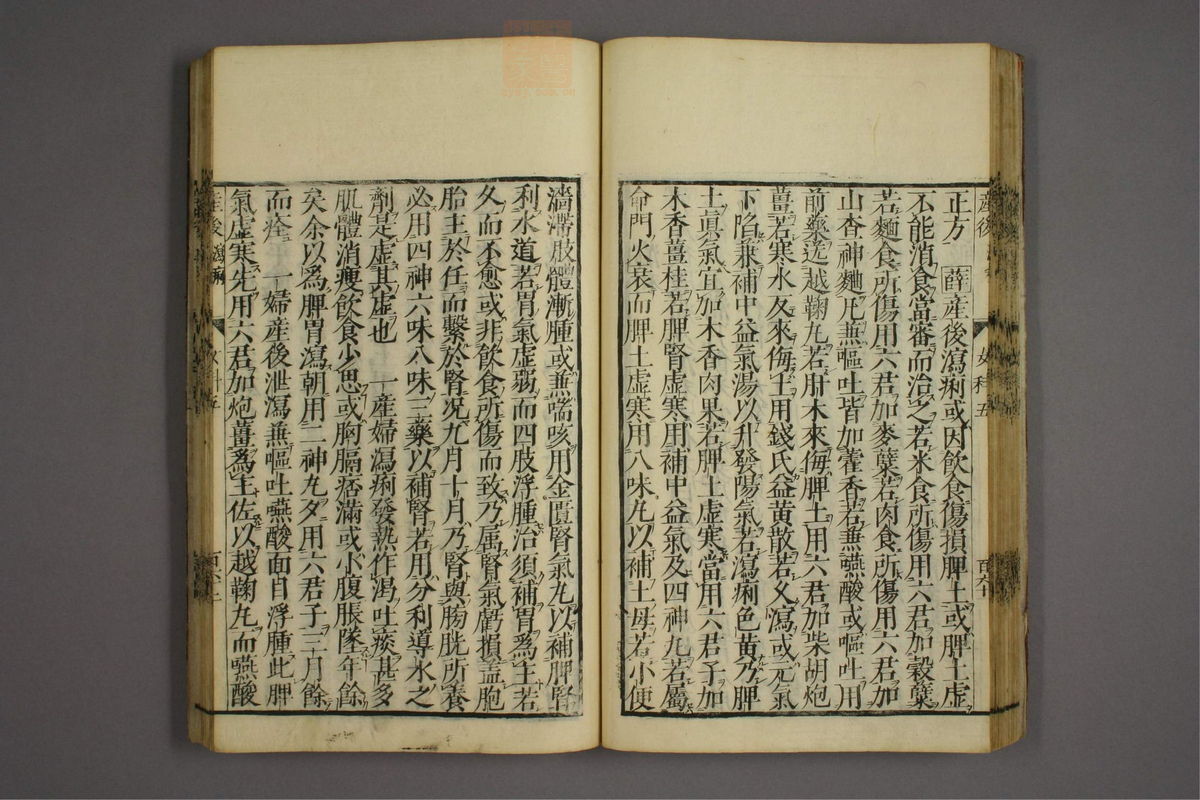 正方 薛産後瀉痢或因飲食傷損脾土或脾土虛
不能消食當審而治之若米食所傷用六君加穀蘗
若麵食所傷用六君加麥蘗若肉食所傷用六君加
山查神麯凡兼嘔吐皆加藿香若兼嚥酸或嘔吐用
前藥送越鞠丸若肝木來侮脾土用六君加柴胡炮
薑若寒水反來侮土用錢氏益黃散若久瀉或元氣
下陷兼補中益氣湯以升發陽氣若瀉痢色黃乃脾
土眞氣宜加木香肉果若脾土虛寒當用六君子加
木香薑桂若脾腎虛寒用補中益氣及四神丸若屬
命門火衰而脾土虛寒用八味丸以補土母若小便
濇滯肢體漸腫或兼喘咳用金匱腎氣丸以補脾腎
利水道若胃氣虛弱而四肢浮腫治須補胃爲主若
久而不愈或非飲食所傷而致乃属腎氣虧損盖胞
胎主於任而繫於腎况九月十月乃腎與膀胱所養
必用四神六味八味三藥以補腎若用分利導水之
劑是虛其虛也 一產婦瀉痢發熱作渴吐痰甚多
肌體消瘦飲食少思或胸膈痞滿或小腹脹墜年餘
矣余以爲脾胃瀉朝用二神丸夕用六君子三月餘
而痊 一婦産後泄瀉兼嘔吐嚥酸面目浮腫此脾
氣虛寒先用六君加炮薑爲主佐以越鞠丸而嚥酸
産後瀉痢
女科五